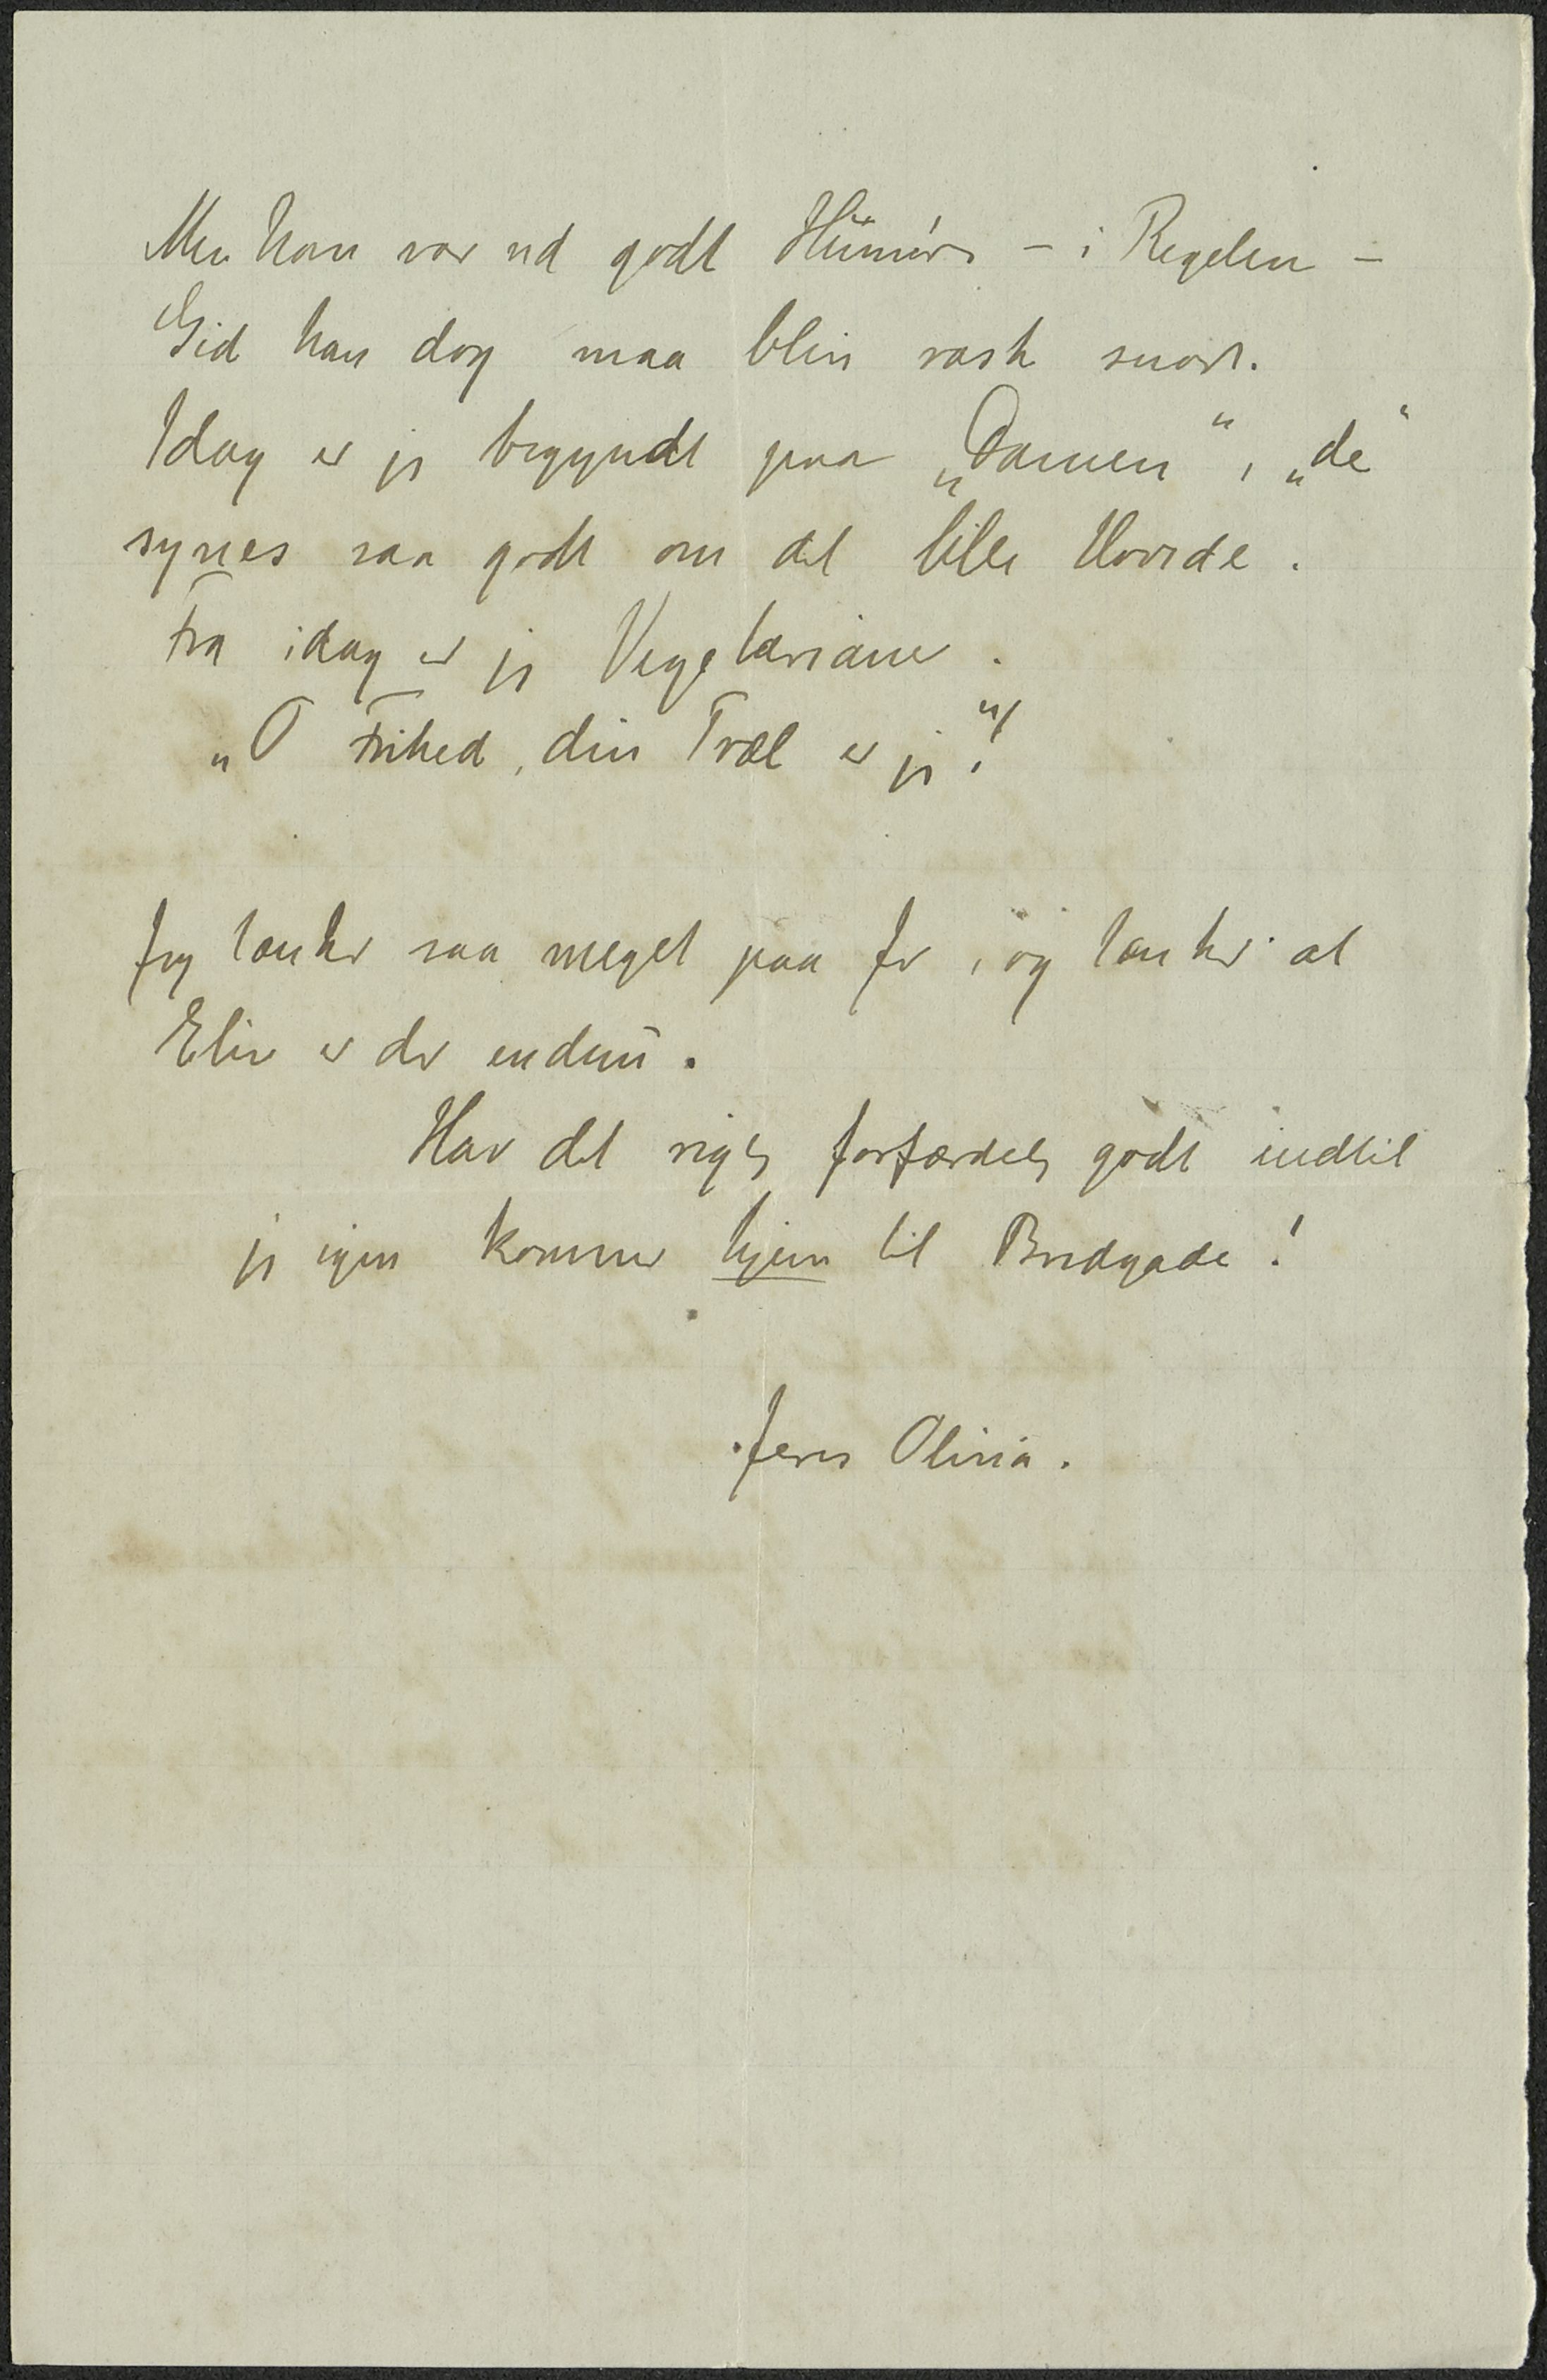 Men han var ved godt Humør – i Regelen –
Gid han dog maa bliv rask snart.
Idag er jeg begyndt paa „Damen“, „de“
synes saa godt om det lille Hovede.
Fra idag er jeg Vegetarianer.
„O Frihed, din Træl er jeg!“
Jeg tænker saa meget paa Jer, og tænker at
Elin er der endnu.
Hav det rigtig forfærdelig godt indtil
jeg igen kommer hjem til Bredgade!
Jeres Olivia.